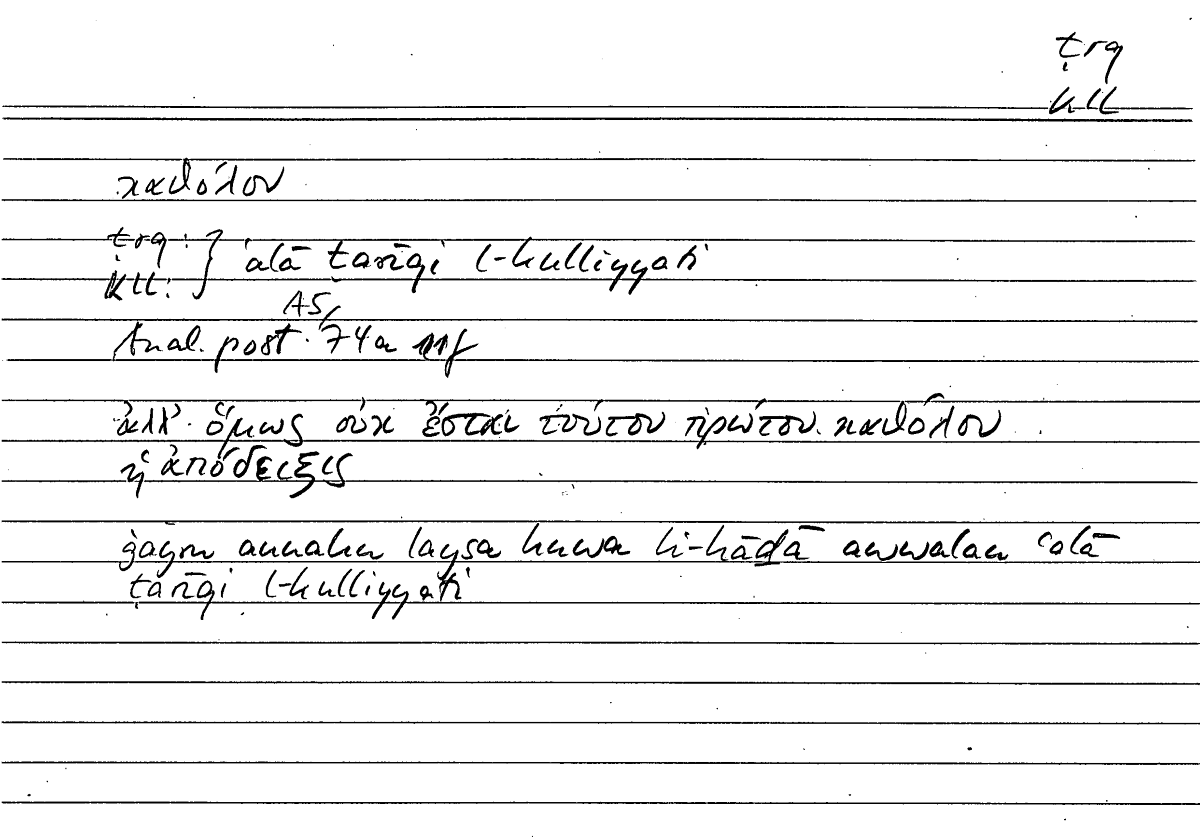 ṭrq
kll
καθόλου
ṭrq: } ʿalā ṭarīqi l-kulliyyati
kll:
A5,
Anal. post. 74a 11f
ἀλλ' ὅμως οὐκ ἔσται τούτου πρώτου καθόλου
ἡ ἀπόδειξις
ġayra annahu laysa huwa li-hāḏā awwalan ʿalā
ṭarīqi l-kulliyyati